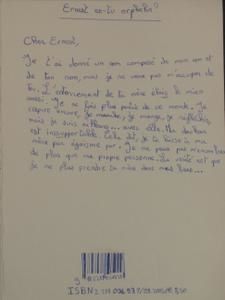 Ernest es-tu orphelin?
Cher Ernest,
Je t'ai donné un nom composé de mon nom et
de ton nom, mais je ne veux pas m'occuper de
toi. L'enterrement de ta mère était le mien
aussi. Je ne fais plus partie de ce monde. Je
respire encore, je marche, je mange, je réfléchis,
mais je suis ailleurs... avec elle. Ma douleur
est insupportable. Cela dit, je te laisse à ma
mère par égoïsme pur. Je ne peux pas m'encombrer
de plus que ma propre personne. La vérité est que
je ne plus prendre ta mère dans mes bras...
ISBN: